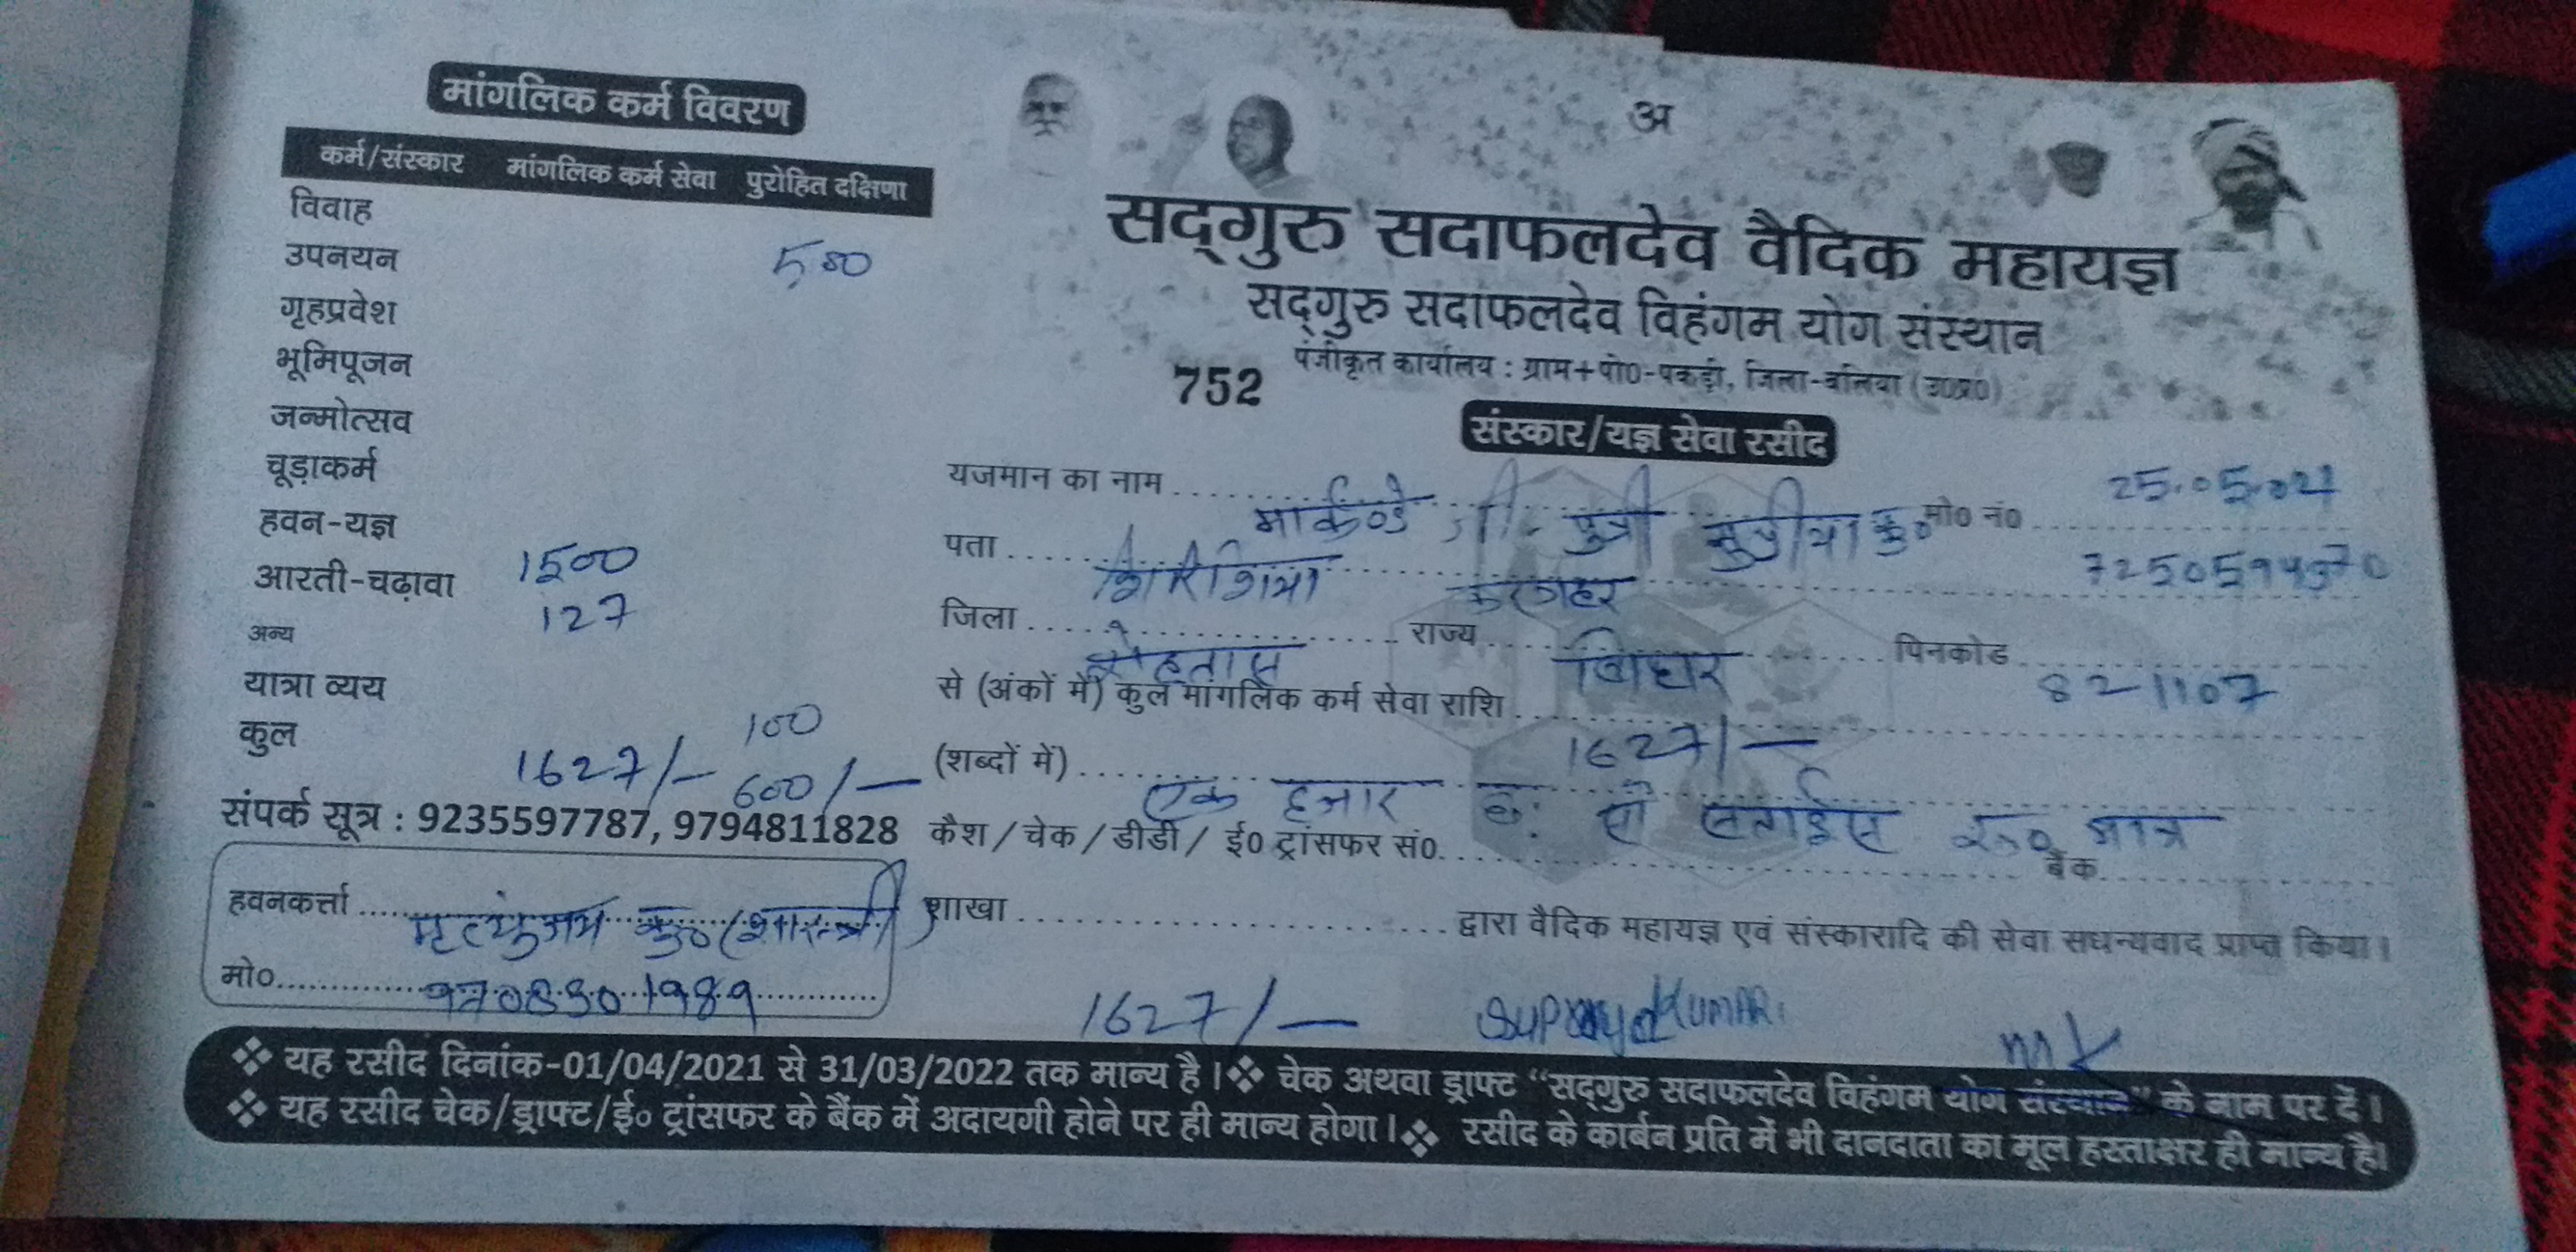 मांगलिक कर्म विवरण
कर्म/संस्कार मांगलिक कर्म सेवा पुरोहित दक्षिणा
विवाह
उपनयन 500
गृहप्रवेश
भूमिपूजन
जन्मोत्सव
चूड़ाकर्म
हवन-यज्ञ
आरती-चढ़ावा 1500
अन्य 127
यात्रा व्यय 100
कुल 1627/- 600/-
संपर्क सूत्र : 9235597787, 9794811828
हवनकर्त्ता मृत्युंजय कु० (शास्त्री)
मो०
अ
सद्गुरु सदाफलदेव वैदिक महायज्ञ
सद्गुरु सदाफलदेव विहंगम योग संस्थान
पंजीकृत कार्यालय : ग्राम+पो0-पकड़ी, जिला-बलिया (उ0प्र0)
752
संस्कार/यज्ञ सेवा रसीद
25.05.021
यजमान का नाम मार्कण्डे जी पुत्री कु० मो0 नं0
पता करगहर
जिला रोहतास राज्य बिहार पिनकोड 821107
से (अंकों में) कुल मांगलिक कर्म सेवा राशि 1627/-
(शब्दों में) एक हजार छः सौ सताईस रु० मात्र
कैश / चेक / डीडी / ई0 ट्रांसफर सं0. बैंक
शाखा द्वारा वैदिक महायज्ञ एवं संस्कारादि की सेवा सधन्यवाद प्राप्त किया।
1627/- KUMARI
❖ यह रसीद दिनांक-01/04/2021 से 31/03/2022 तक मान्य है।❖ चेक अथवा ड्राफ्ट “सद्गुरु सदाफलदेव विहंगम योग संस्थान” के नाम पर दें।
❖ यह रसीद चेक/ड्राफ्ट/ई० ट्रांसफर के बैंक में अदायगी होने पर ही मान्य होगा।❖ रसीद के कार्बन प्रति में भी दानदाता का मूल हस्ताक्षर ही मान्य है।